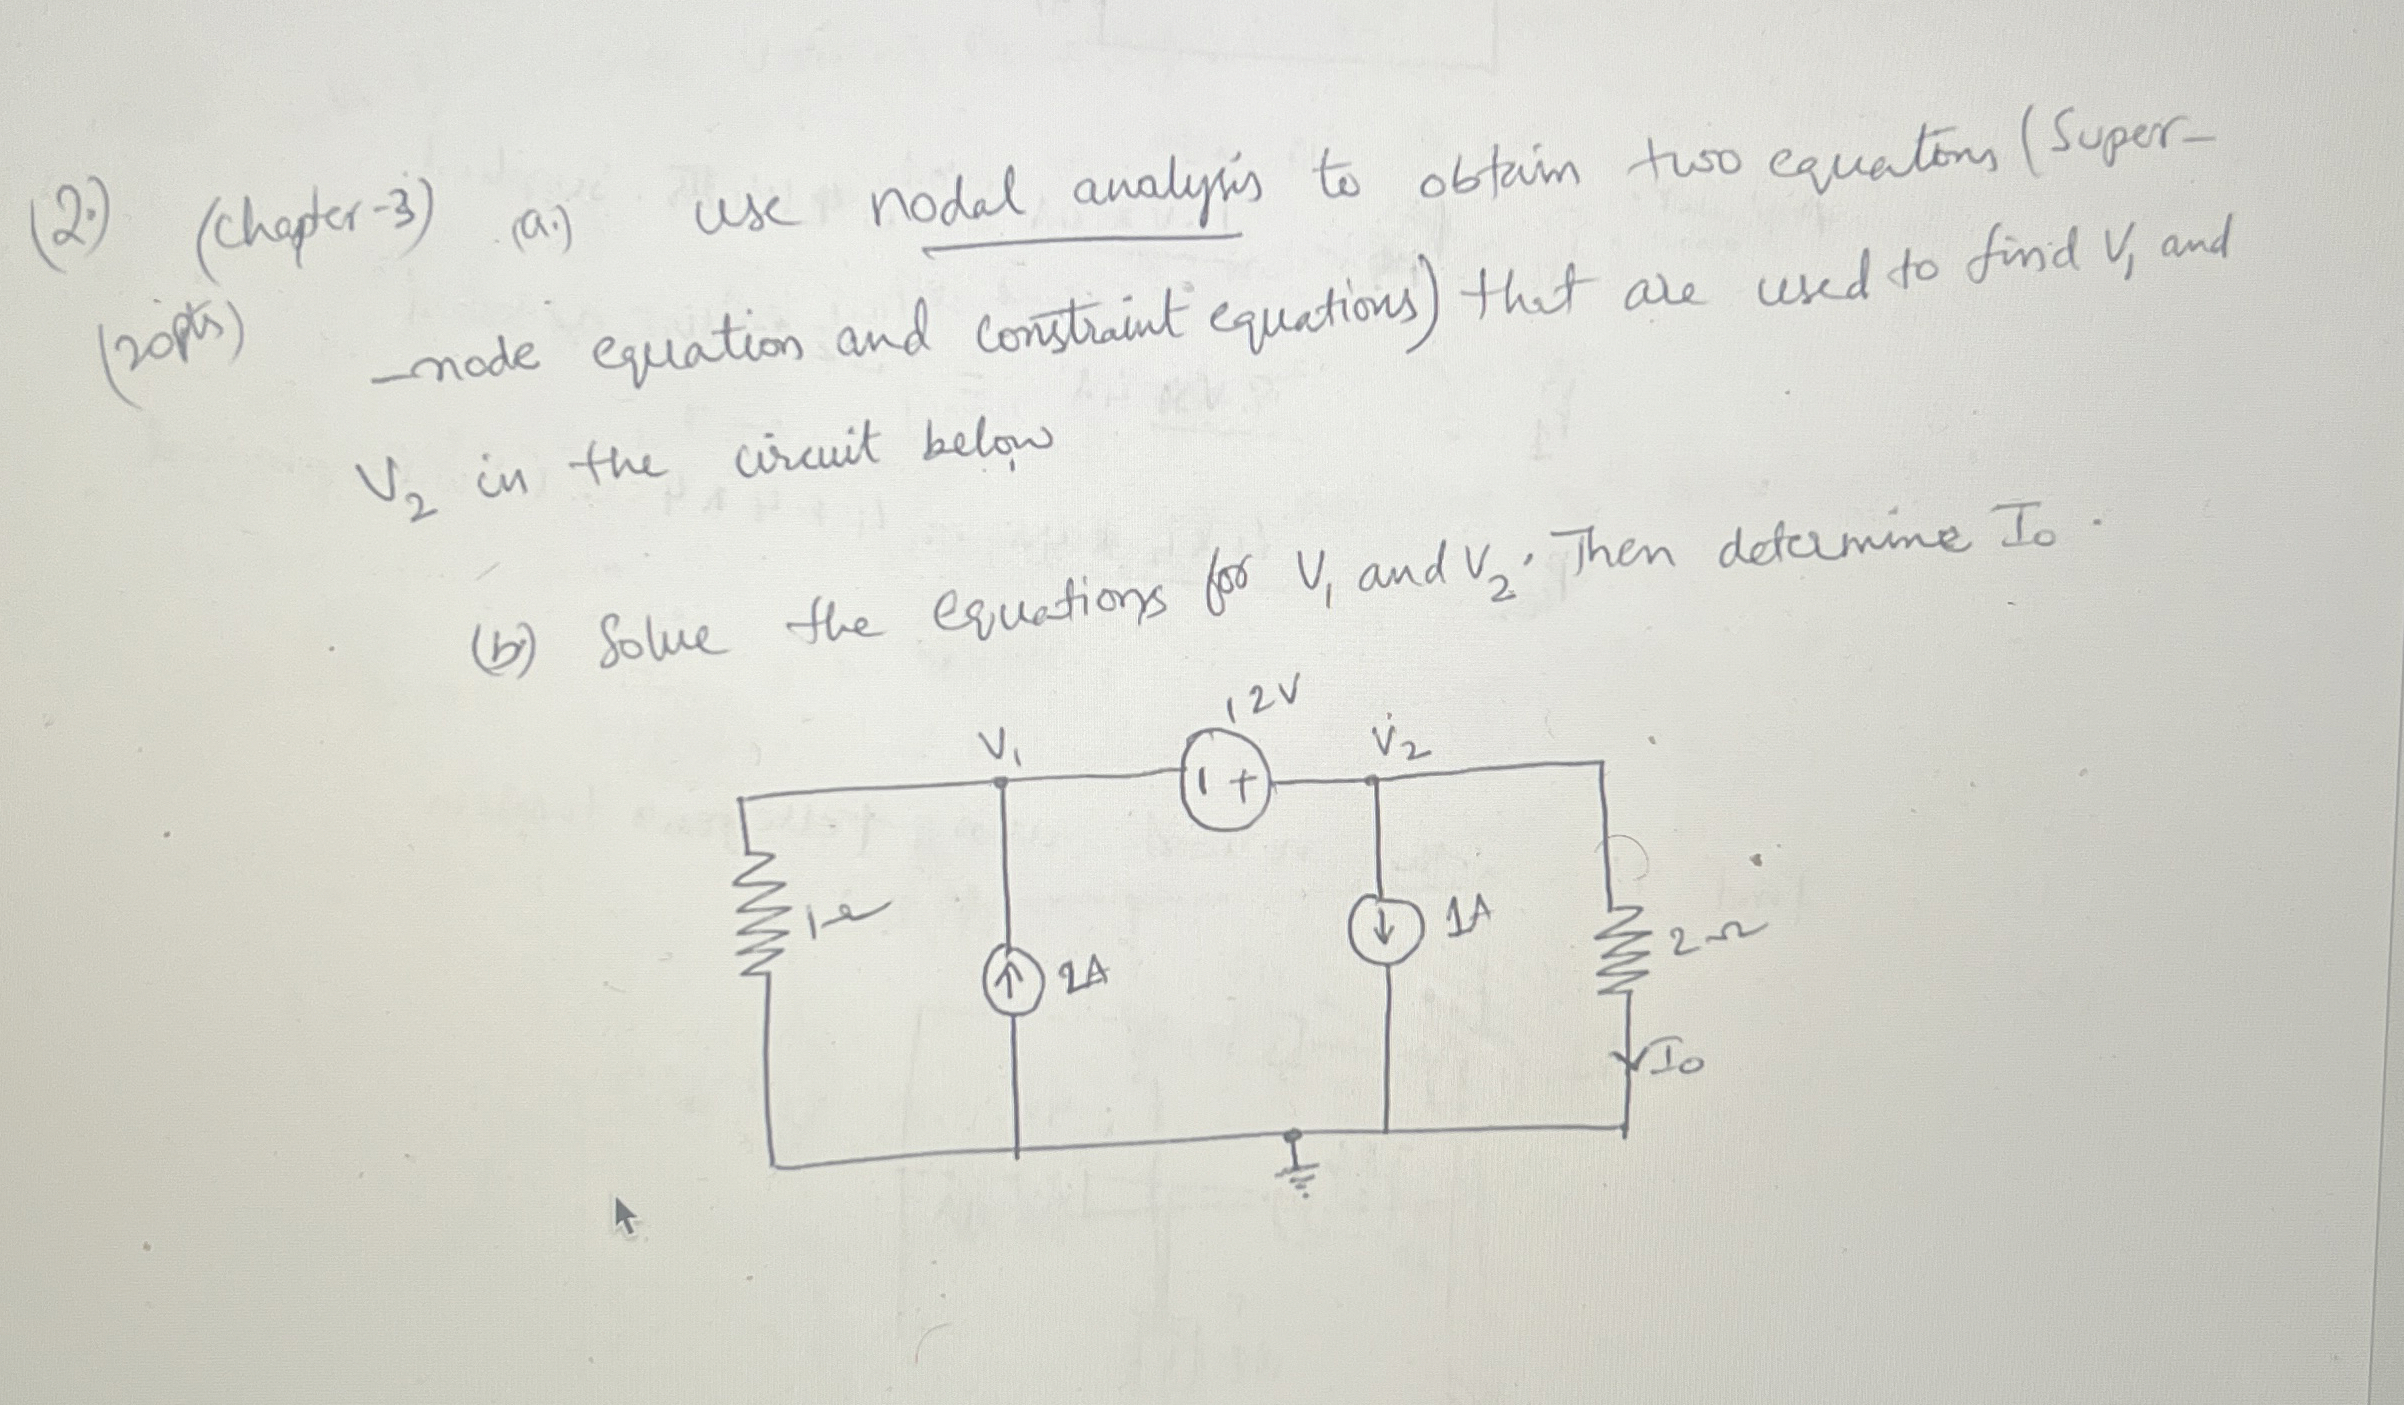 (2.) (Chapter-3) (a.) use nodal analysis to obtain two equations (Super-
(20pts) -node equation and constraint equations) that are used to find V1 and
V2 in the circuit below
(b) Solve the equations for V1 and V2. Then determine Io.
12V
V1
V2
1Ω
2A
1A
2Ω
Io
- +